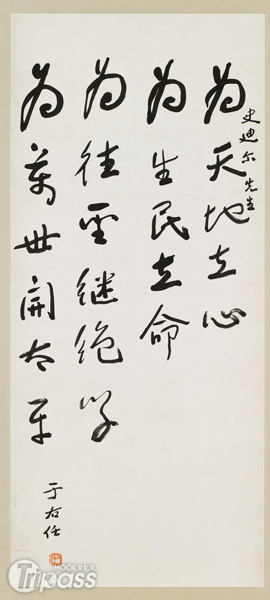 史迪尔先生
为天地立心
为生民立命
为往圣继绝学
为万世開太平
于右任
MOOK景點家
Tripass